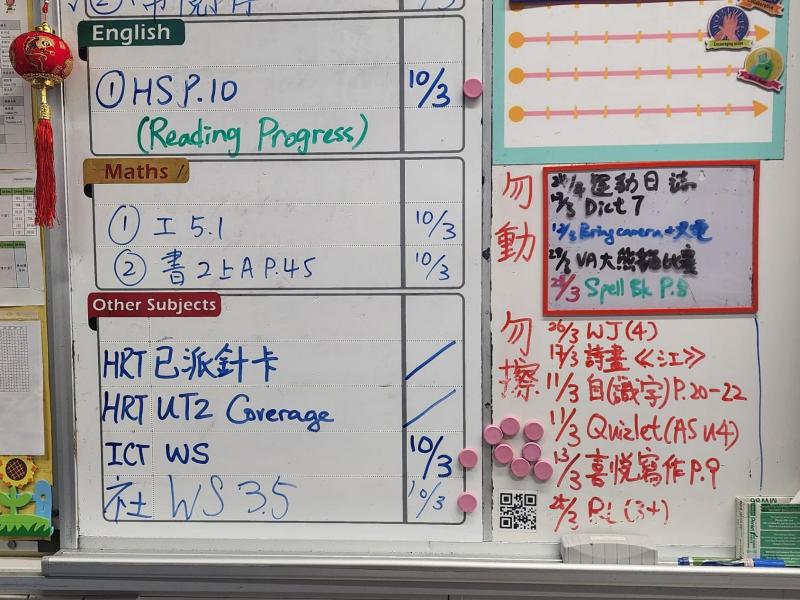 English
① HS P.10 10/3
(Reading Progress)
Maths
① 工 5.1 10/3
② 書 2上A P.45 10/3
Other Subjects
HRT 已派針卡
HRT UT2 Coverage
ICT WS 10/3
社 WS 3.5 10/3
勿動
運動日誌
Dict 7
Bring camera +
VA 大熊貓比賽
Spell Bk P.8
勿擦
26/3 WJ(4)
17/3 詩畫《江》
11/3 自(識字)P.20-22
11/3 Quizlet(AS u4)
13/3 喜悅寫作P.9